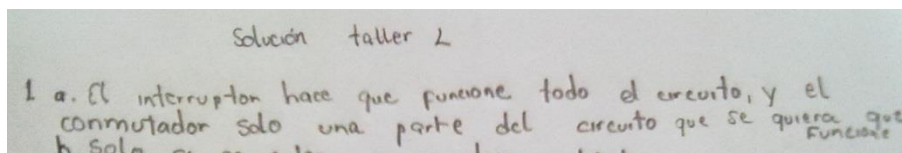 Solución taller 2
1 a. El interruptor hace que funcione todo el circuito, y el
conmutador solo una parte del circuito que se quiera que
funcione
b solo